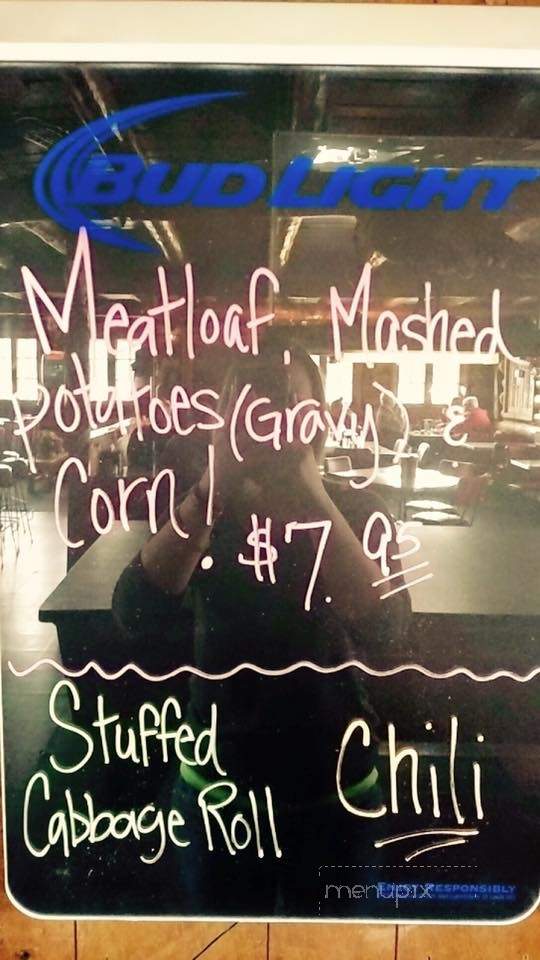 BUD LIGHT
Meatloaf, Mashed
potatoes (Gravy) &
Corn! $7.95
Stuffed
Cabbage Roll
Chili
menupix
RESPONSIBLY